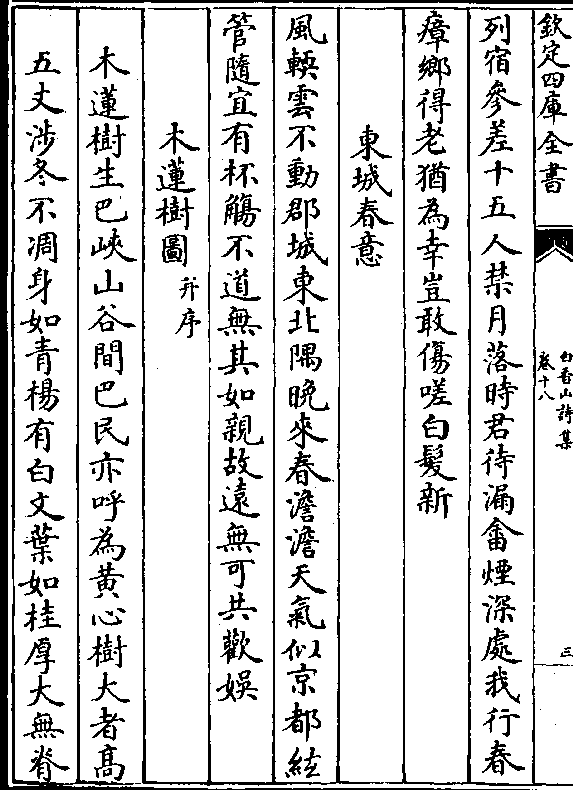 欽定四庫全書
白香山詩集
卷十八
三
列宿參差十五人禁月落時君待漏畬煙深處我行春
瘴鄉得老猶為幸豈敢傷嗟白髮新
東城春意
風輭雲不動郡城東北隅晚來春澹澹天氣似京都絃
管隨宜有杯觴不道無其如親故遠無可共歡娛
木蓮樹圖并序
木蓮樹生巴峽山谷間巴民亦呼為黃心樹大者高
五丈涉冬不凋身如青楊有白文葉如桂厚大無脊